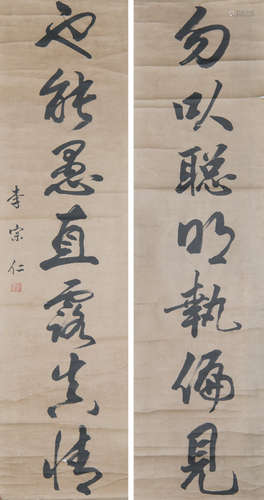 勿以聪明執偏見
也能愚直露真情
李宗仁